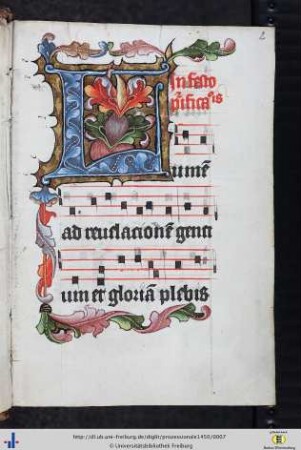 2
In festo
p̄ificac̄is
Lumē
ad reuelacionē genti
um et gloriā plebis
http://dl.ub.uni-freiburg.de/diglit/prozessionale1450/0007
© Universitätsbibliothek Freiburg